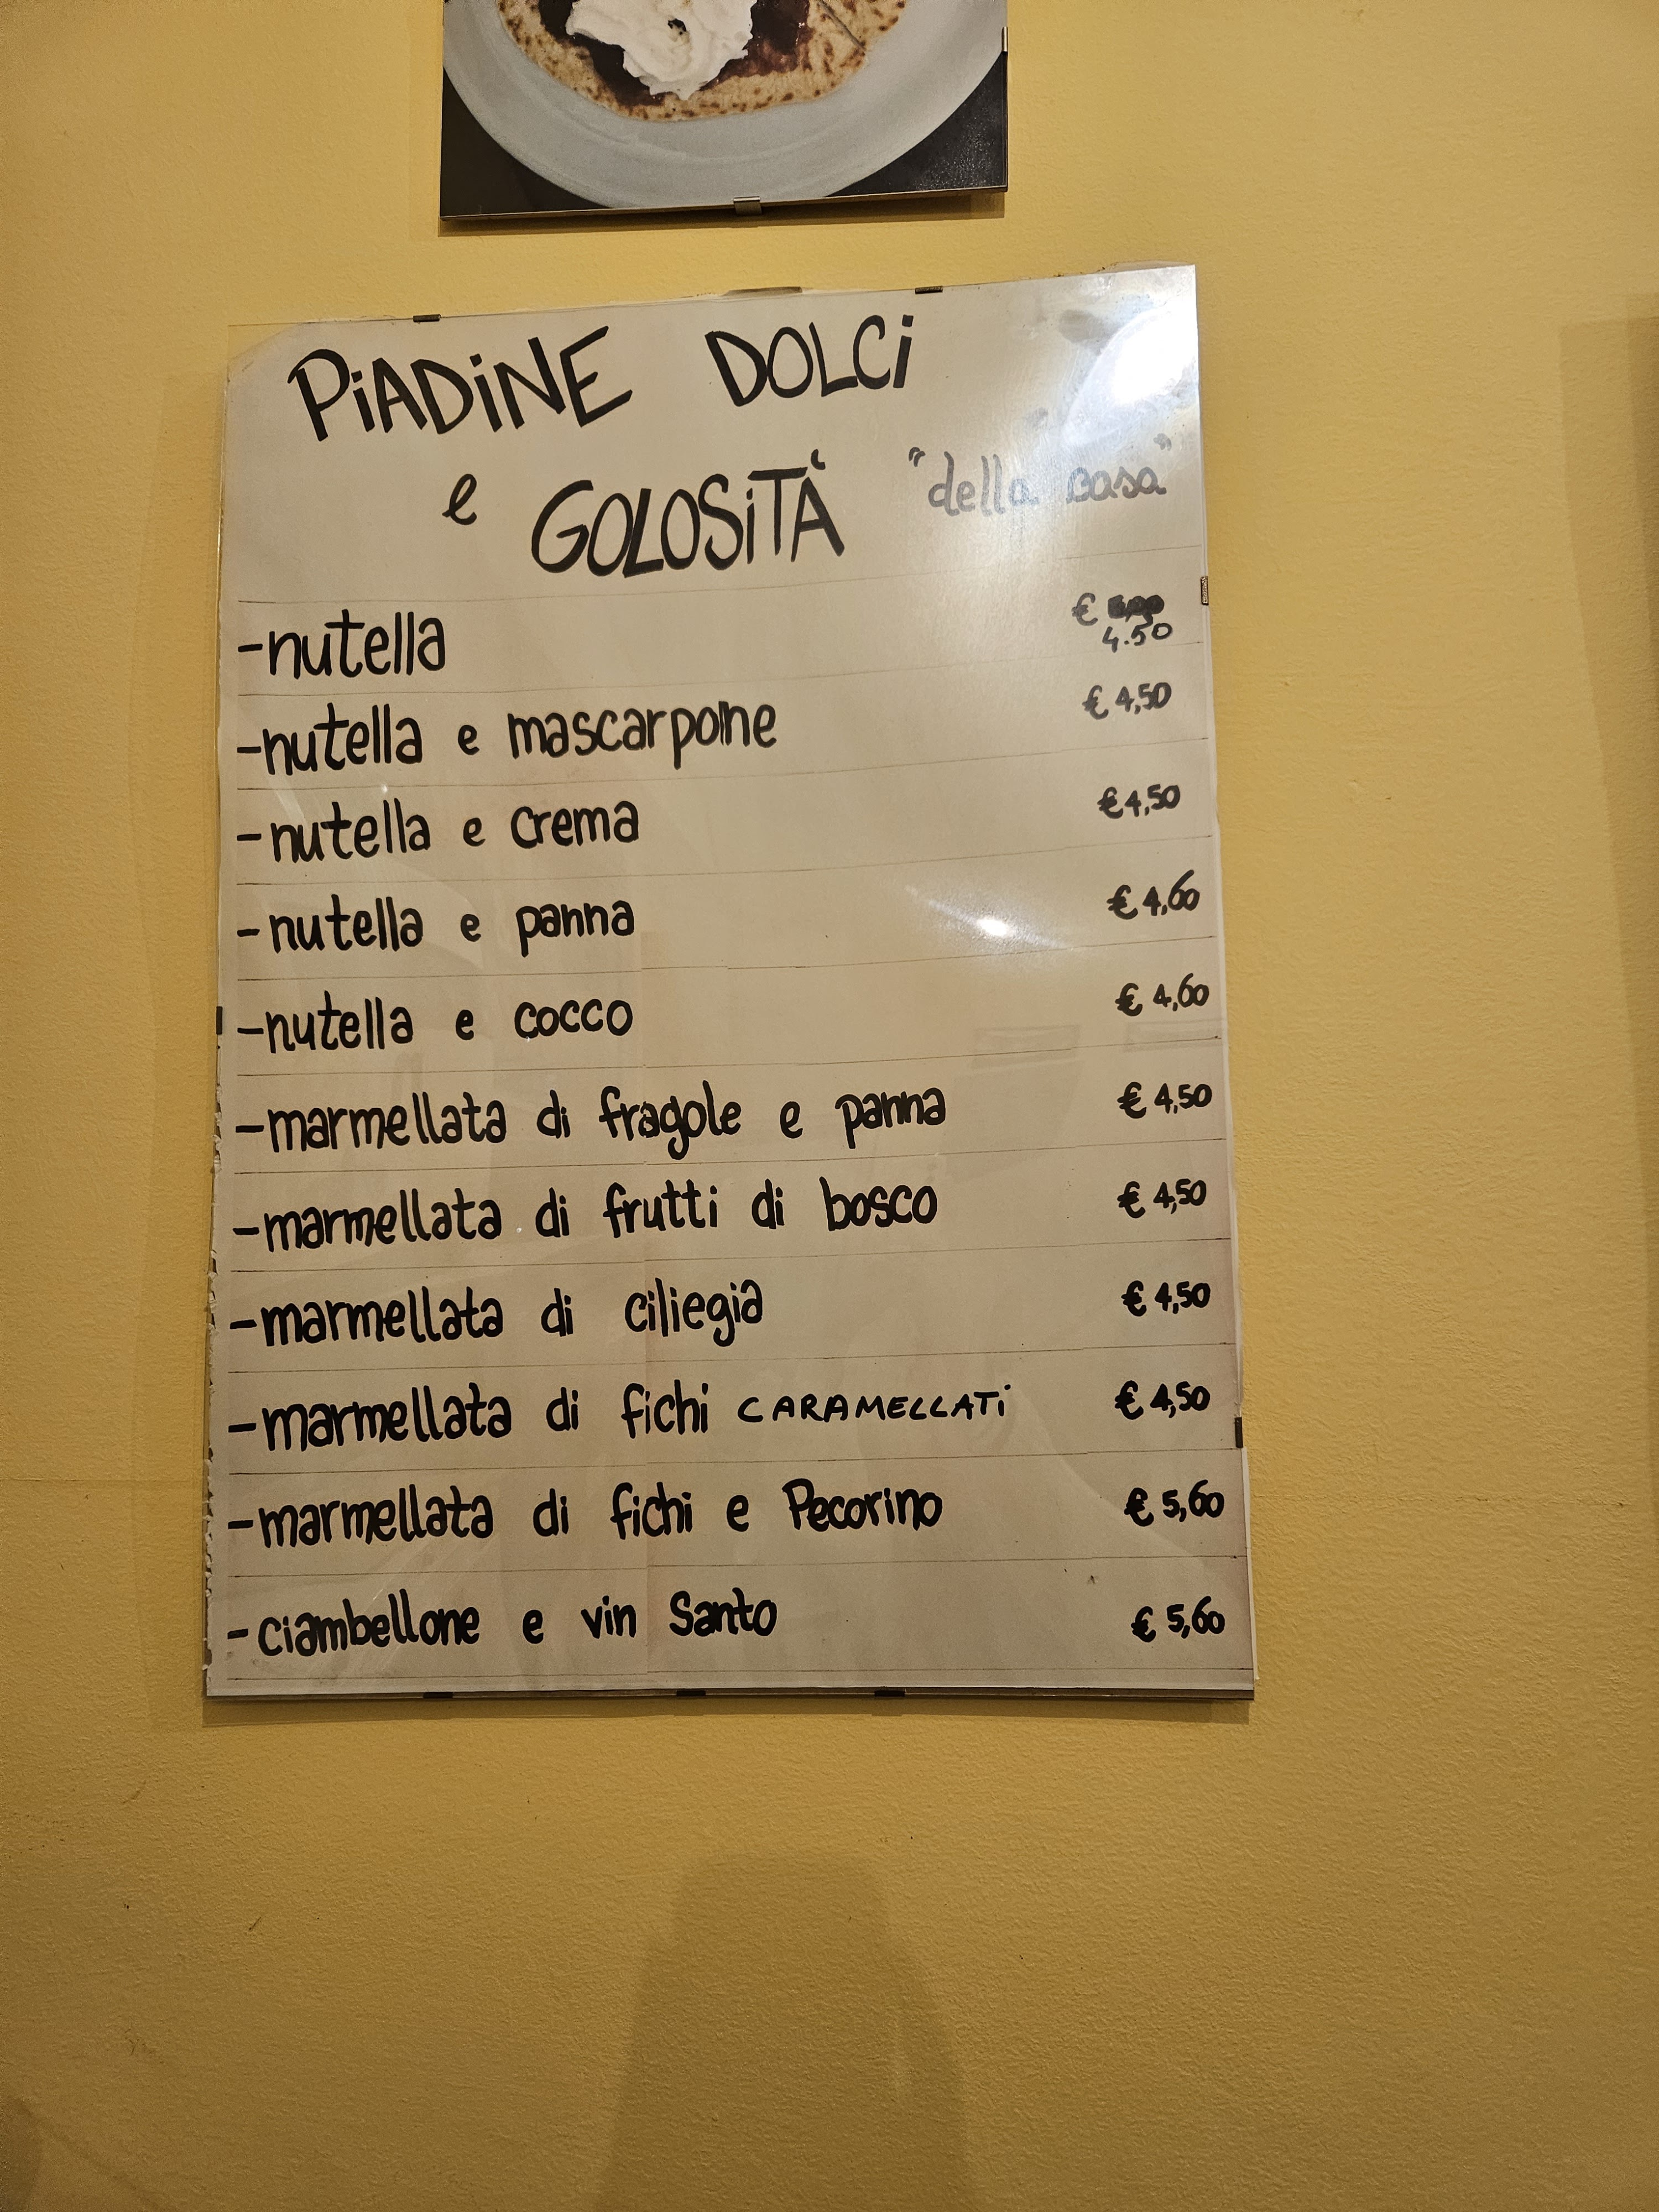 PiADiNE DOLCi
e GOLOSiTÀ "della casa"
-nutella € 4.50
-nutella e mascarpone € 4,50
-nutella e crema € 4,50
-nutella e panna € 4,60
-nutella e cocco € 4,60
-marmellata di fragole e panna € 4,50
-marmellata di frutti di bosco € 4,50
-marmellata di ciliegia € 4,50
-marmellata di fichi CARAMELLATi € 4,50
-marmellata di fichi e Pecorino € 5,60
-ciambellone e vin Santo € 5,60